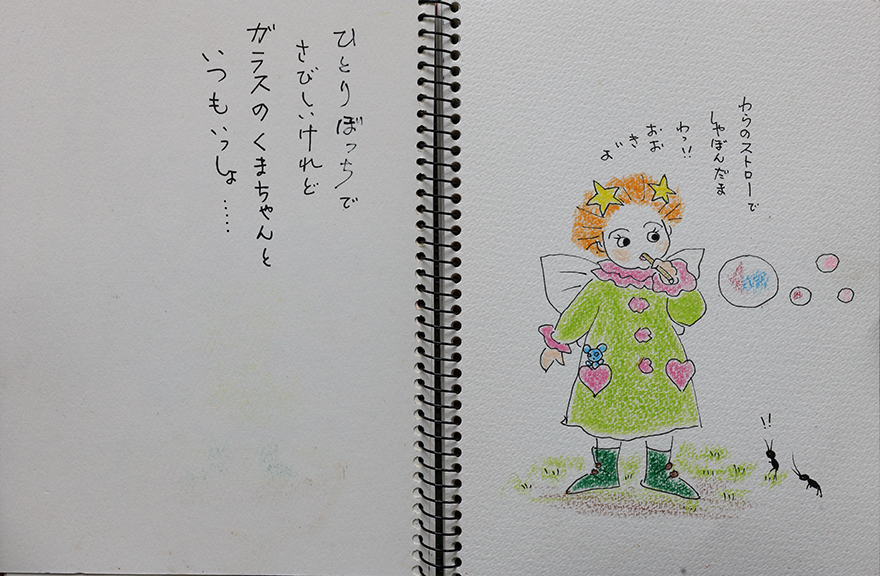 ひとりぼっちで
さびしいけれど
ガラスのくまちゃんと
いつもいっしょ……
わらのストローで
しゃぼんだま
わっ!!
おおきいよ
!!